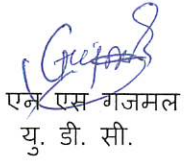 एन एस गजमल
यु. डी. सी.